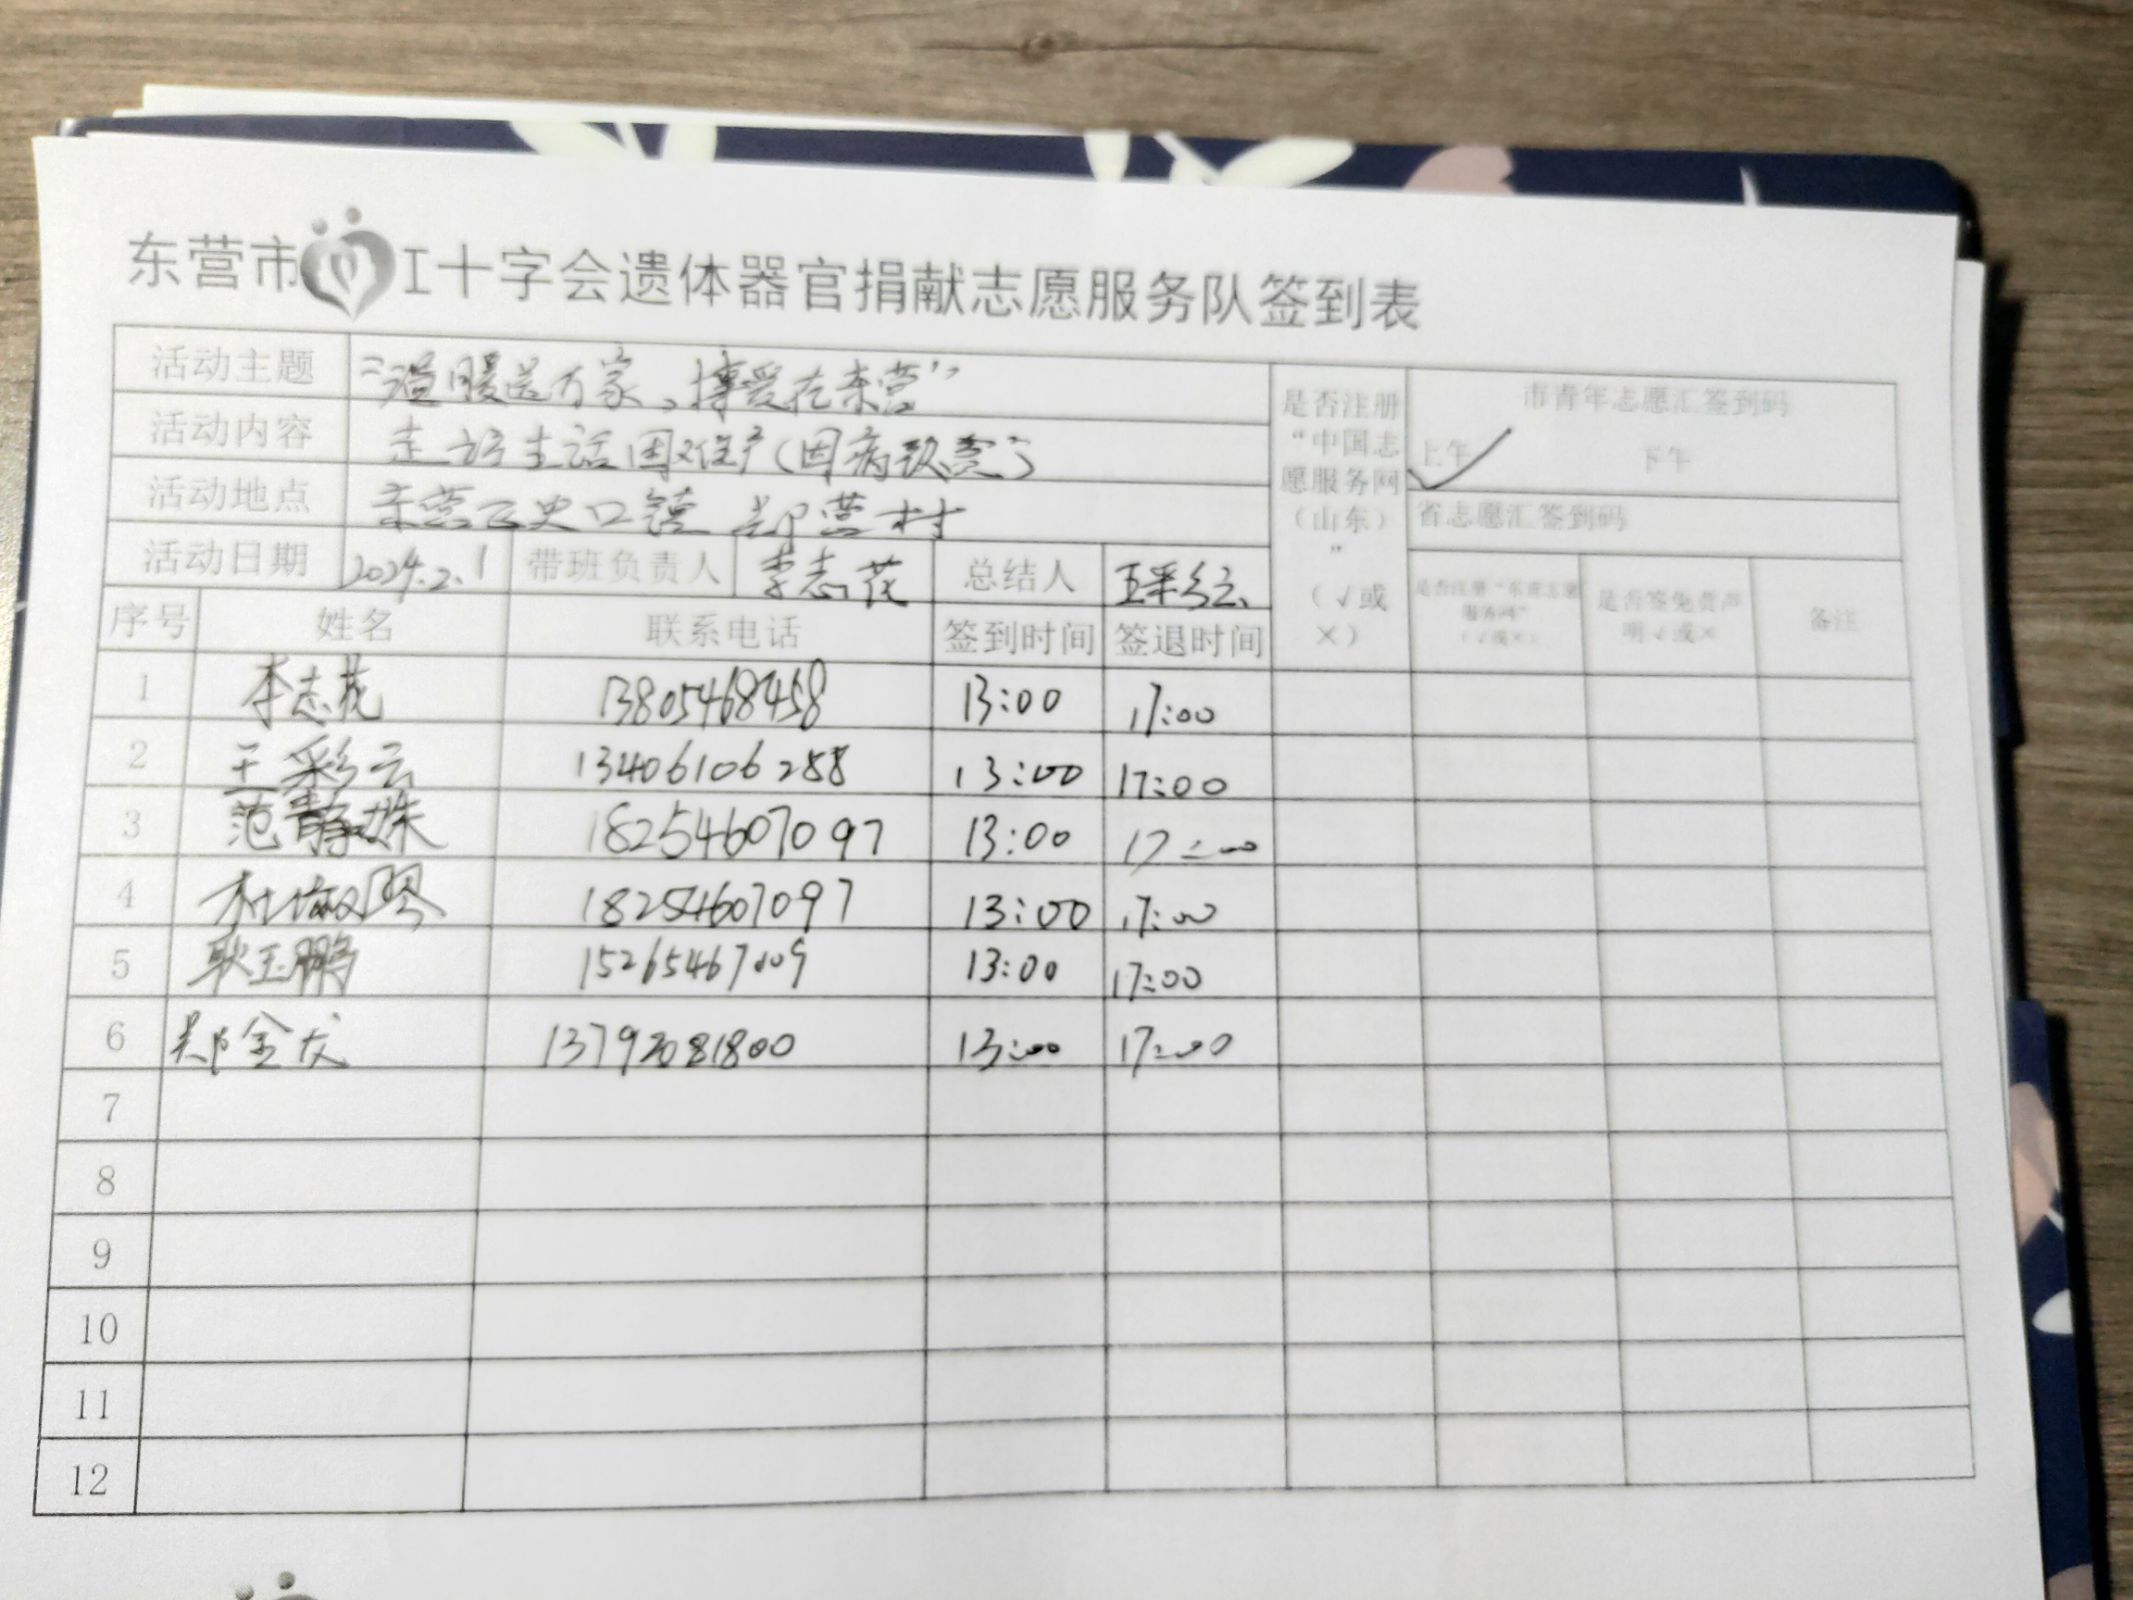 东营市 十字会遗体器官捐献志愿服务队签到表
活动主题 “温暖送万家,博爱在东营”
活动内容 走访生活困难户(因病致贫)
活动地点 东营区史口镇 郑营村
活动日期 2024.2.1 带班负责人 李志花 总结人 王彩云
是否注册“中国志愿服务网(山东)”(√或×)
市青年志愿汇签到码
上午 ✓ 下午
省志愿汇签到码
是否注册“东营志愿服务网”(√或×) 是否签免责声明√或× 备注
序号 姓名 联系电话 签到时间 签退时间
1 李志花 13805468458 13:00 17:00
2 王彩云 13406106288 13:00 17:00
3 范静姝 18254607097 13:00 17:00
4 18254607097 13:00 17:00
5 耿玉鹏 13:00 17:00
6 郑金龙 13792081800 13:00 17:00
7
8
9
10
11
12